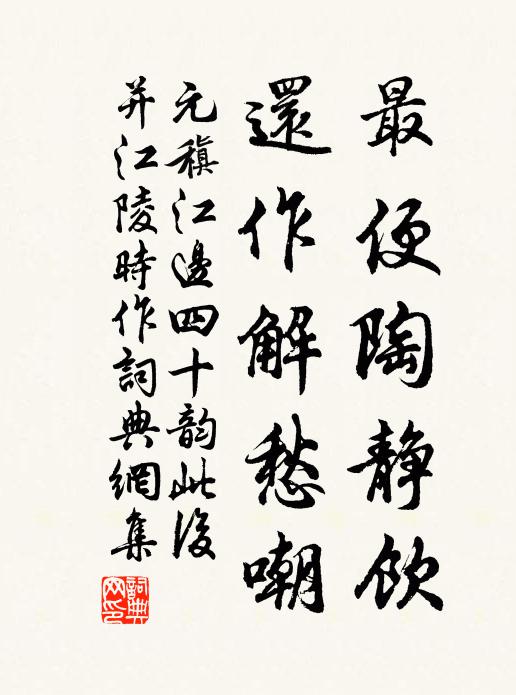 最便陶静飲
還作解愁嘲
元稹江邊四十韵此後
并江陵時作詞典網集
詞典網印